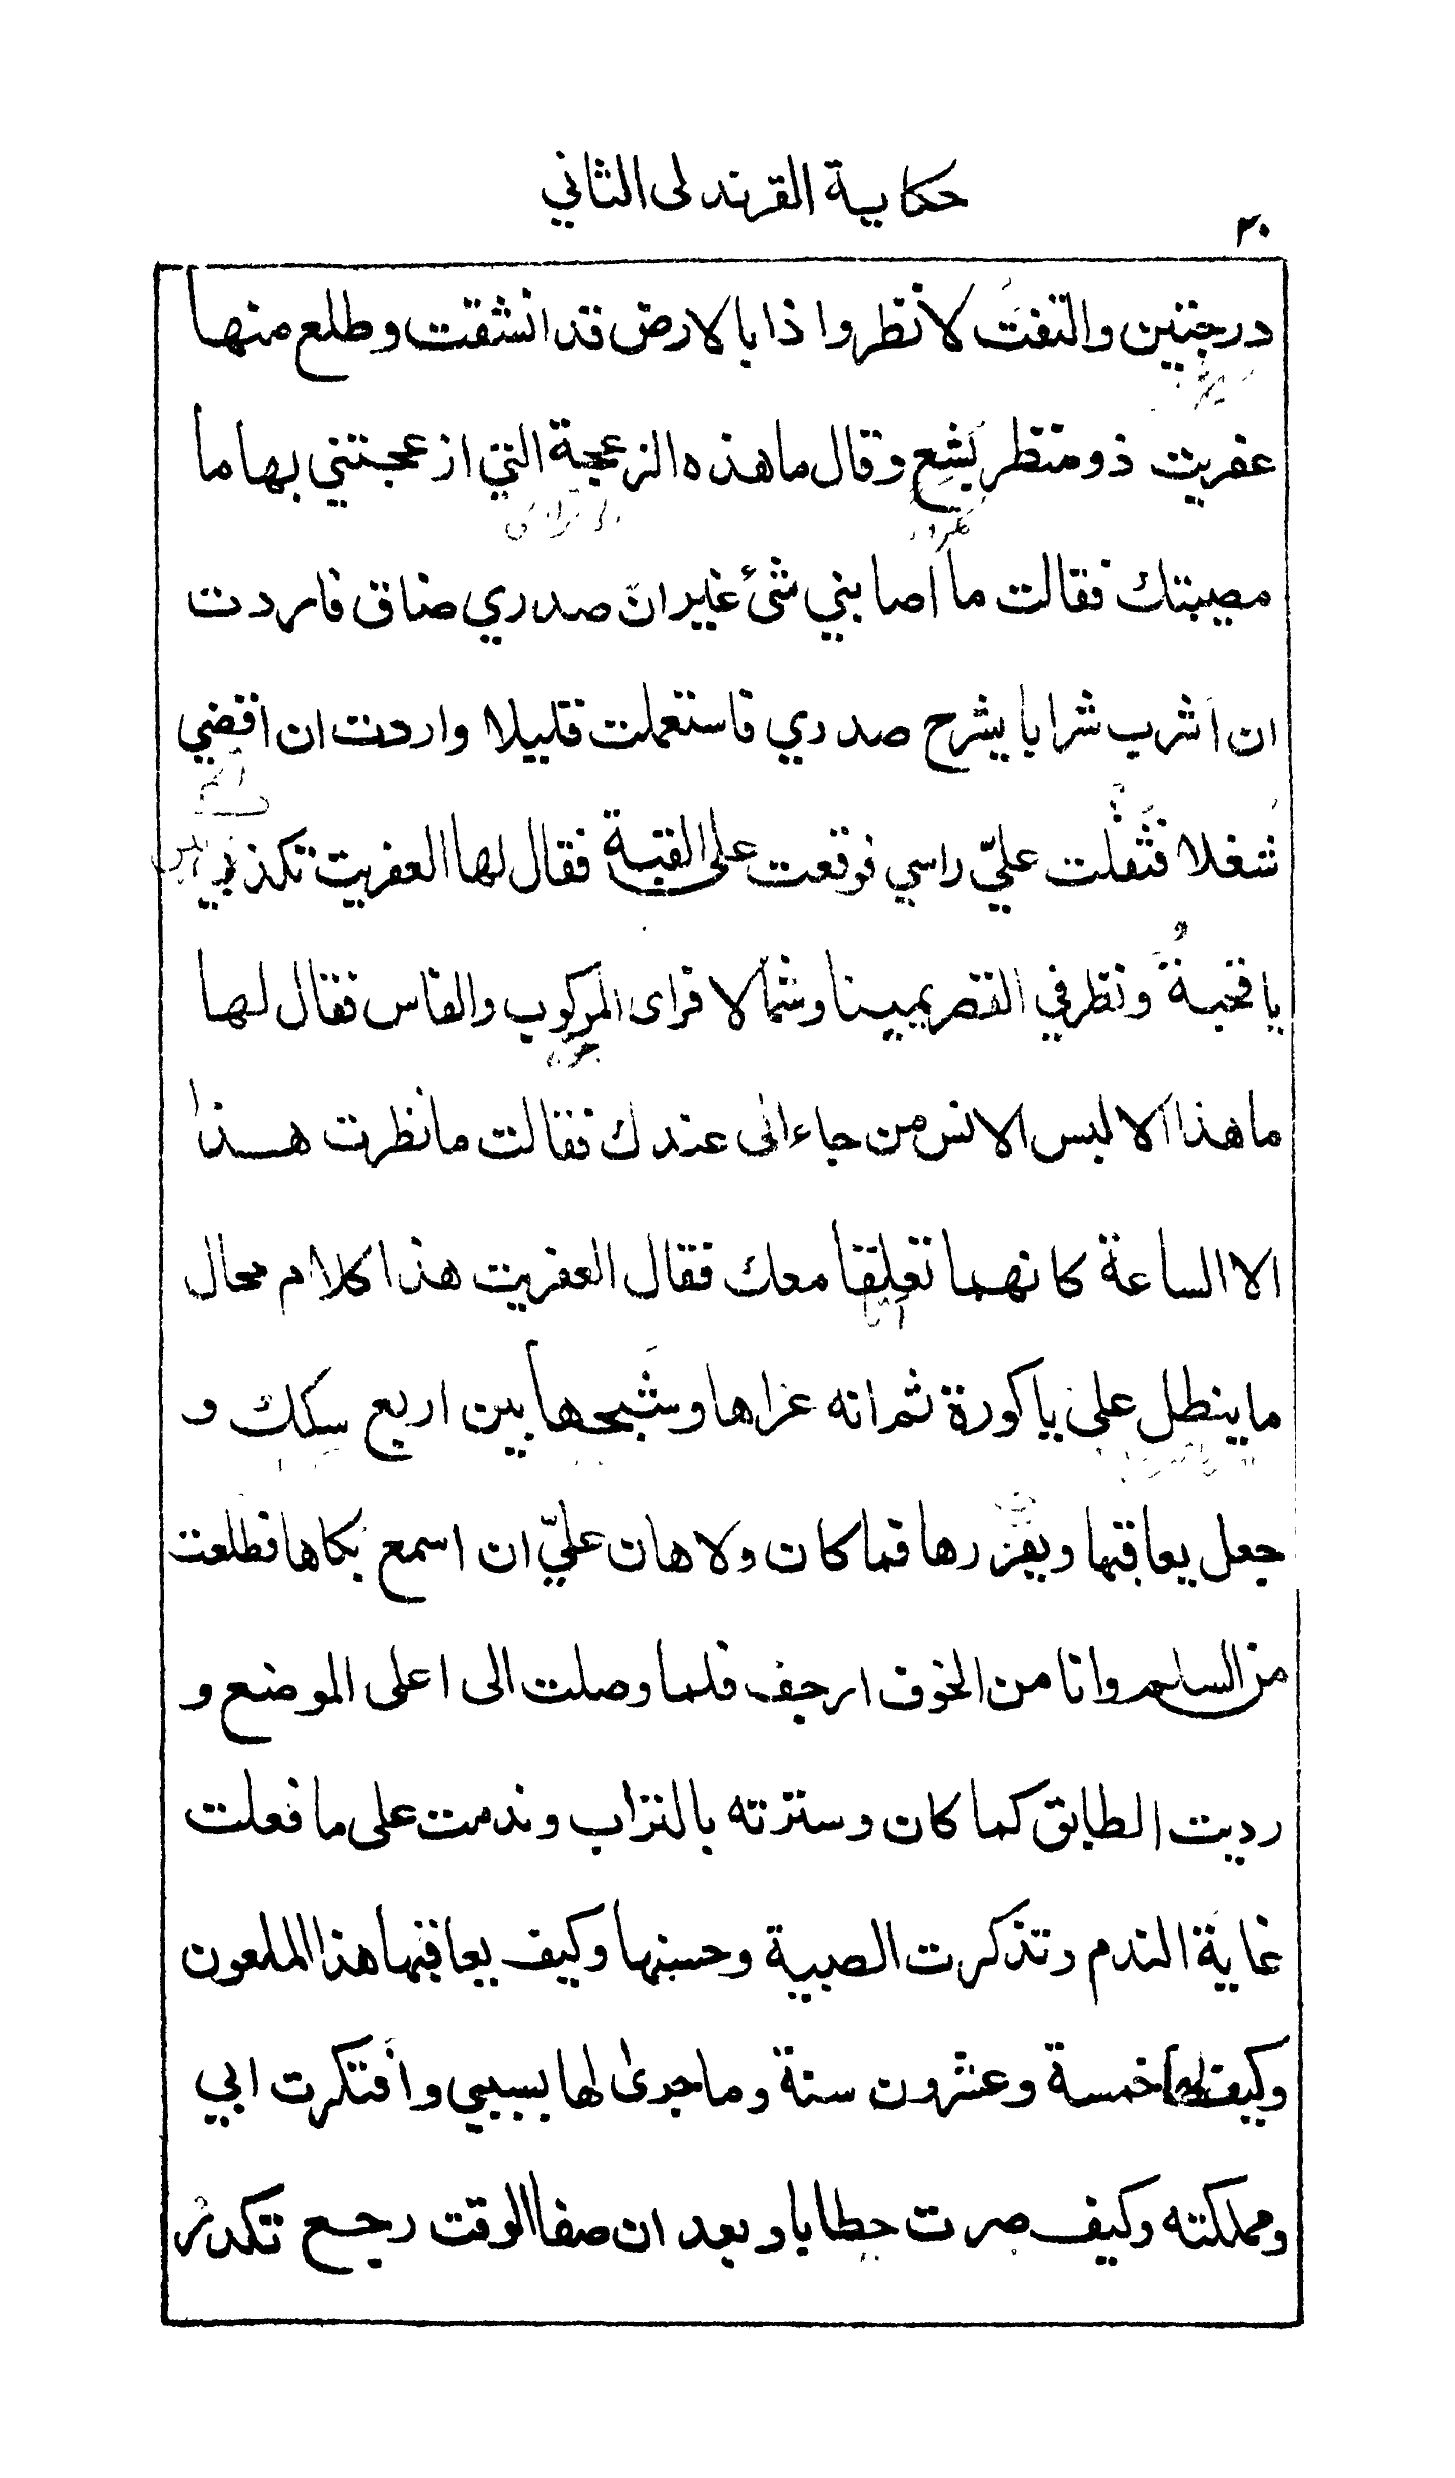 حكاية القرندلى الثاني
٣٠
درجتين والتفتُّ لانظر واذا بالارض قد انشقت وطلع منها
عفريت ذو منظر بَشِع وقال ما هذه الزعجة التي ازعجتني بها ما
مصيبتك فقالت ما أصابني شئ غير انّ صدري ضاق فاردت
ان أشرب شرابا يشرح صدري فاستعملت قليلا واردت ان اقضي
شغلا فثقلت عليّ راسي فوقعت على القبة فقال لها العفريت تكذبي
يا قحبةُ ونظر في القصر يمينا وشمالا فراى المركوب والفاس فقال لها
ما هذا الا لبس الانس من جاء الى عندك فقالت ما نظرت هذا
الا الساعة كانهما تعلقا معك فقال العفريت هذا كلام محال
ما ينطل علي يا كورة ثم انه عراها وشبحها بين اربع سكك و
جعل يعاقبها ويقررها فما كان ولا هان عليّ ان اسمع بكاها فطلعت
من السلم وانا من الخوف ارجف فلما وصلت الى اعلى الموضع و
رديت الطابق كما كان وسترته بالتراب وندمت على ما فعلت
غاية الندم وتذكرت الصبية وحسنها وكيف يعاقبها هذا الملعون
وكيف لها خمسة وعشرون سنة وما جرى لها بسببي وأفتكرت ابي
ومملكته وكيف صرت حطابا وبعد ان صفا الوقت رجع تكدر